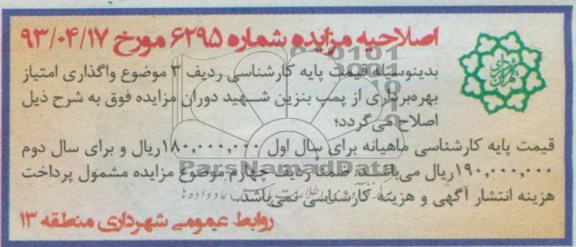 اصلاحیه مزایده شماره ۶۲۹۵ مورخ ۹۳/۰۴/۱۷
بدینوسیله قیمت پایه کارشناسی ردیف ۳ موضوع واگذاری امتیاز
بهره‌برداری از پمپ بنزین شهید دوران مزایده فوق به شرح ذیل
اصلاح می‌گردد؛
قیمت پایه کارشناسی ماهیانه برای سال اول ۱۸۰,۰۰۰,۰۰۰ریال و برای سال دوم
۱۹۰,۰۰۰,۰۰۰ریال می‌باشد. ضمنا ردیف چهارم موضوع مزایده مشمول پرداخت
هزینه انتشار آگهی و هزینه کارشناسی نمی‌باشد.
روابط عمومی شهرداری منطقه ۱۳
ParsNamadData